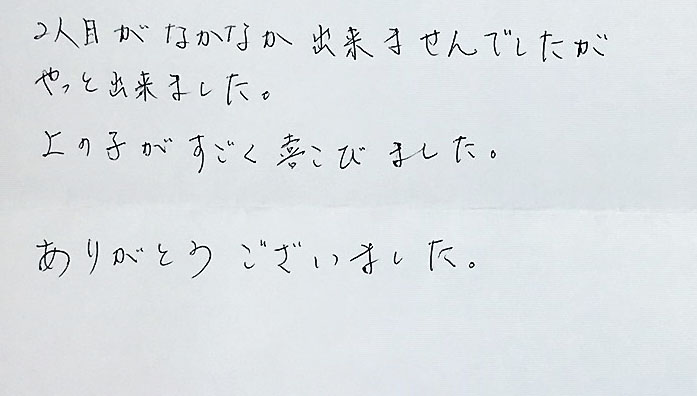 2人目がなかなか出来ませんでしたが
やっと出来ました。
上の子がすごく喜こびました。
ありがとうございました。